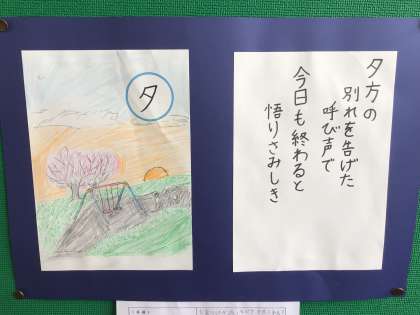 夕
夕方の
別れを告げた
呼び声で
今日も終わると
悟りさみしき